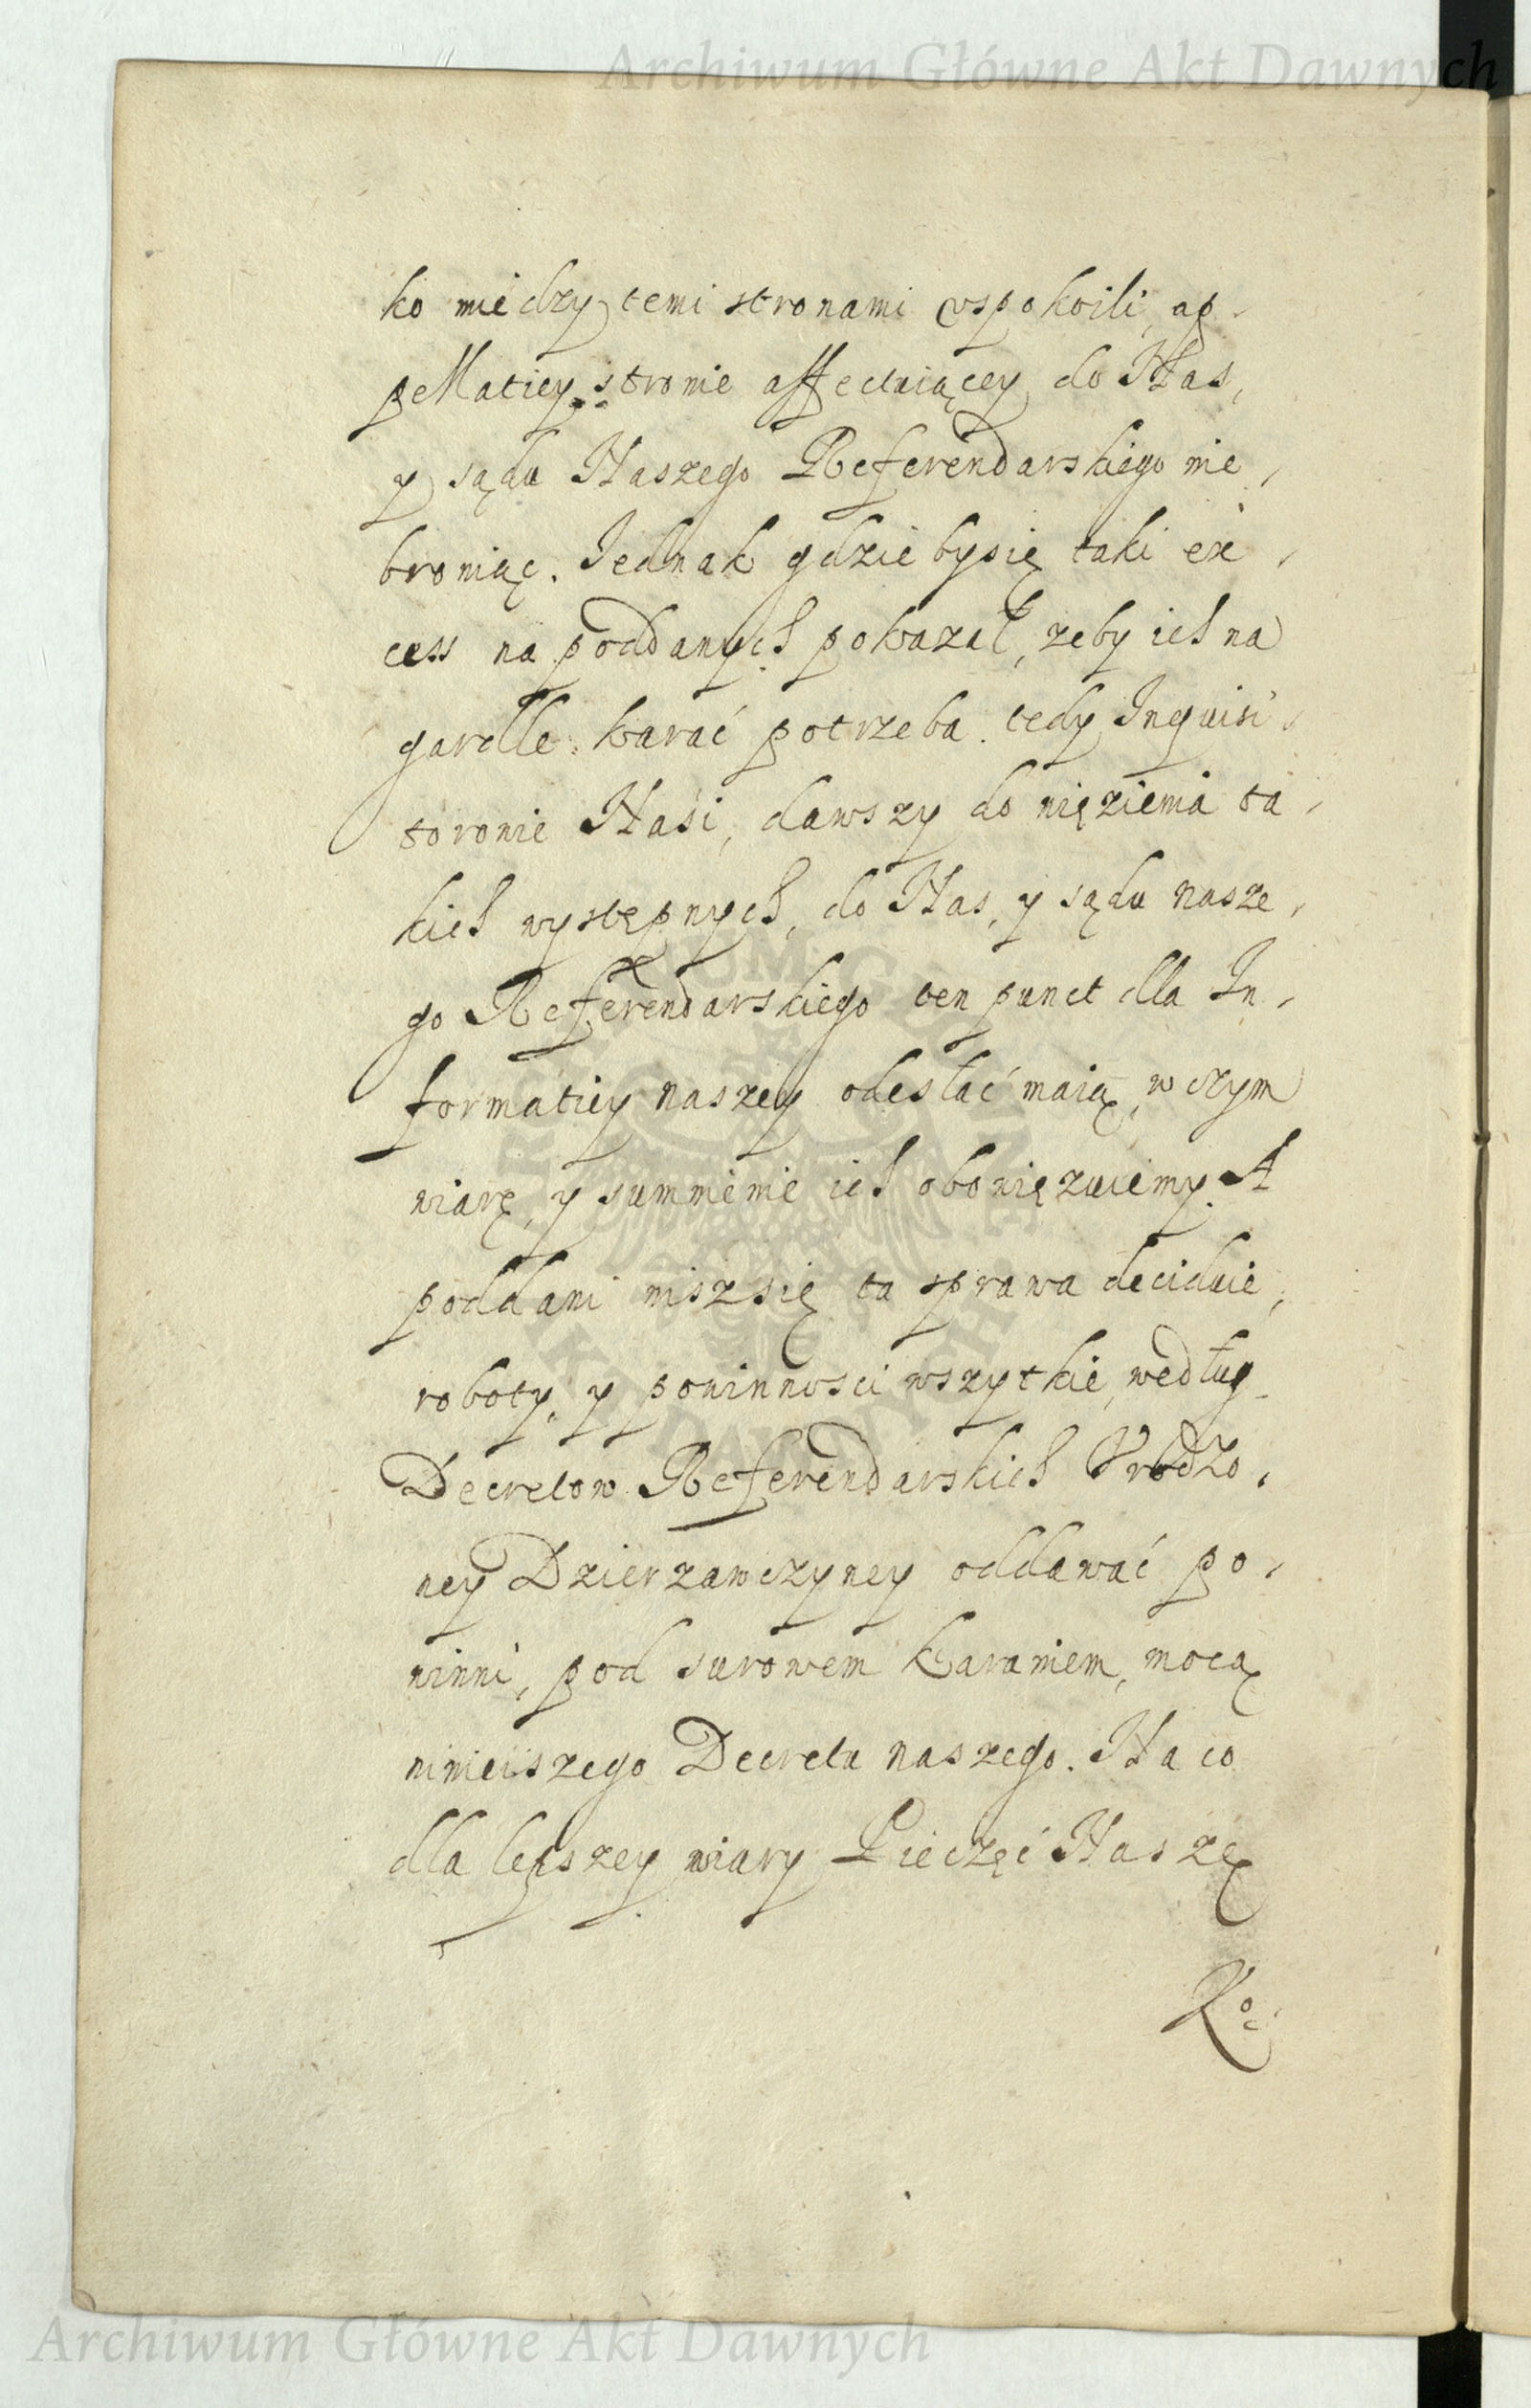 Archiwum Główne Akt Dawnych
ko między temi stronami uspokoili, ap-
pellatiey stronie affectuiącey do Nas,
y sądu Naszego Referendarskiego nie
broniąc. Jednak gdzieby się taki ex-
cess na poddanych pokazał, zeby ich na
gardle karać potrzeba. tedy Inquisi-
torowie Nasi, dawszy do więzienia ta-
kich występnych, do Nas, y sądu nasze-
go Referendarskiego ten punct dla In-
formatiey naszey odesłać maią, w czym
wiarę, y sumnienie ich obowięzuiemy. A
poddani nisz się ta sprawa deciduie,
roboty, y powinnosci wszytkie, według
Decretow Referendarskich Vrodzo-
ney Dzierzawczyney oddawać po-
winni, pod surowem karaniem, mocą
ninieiszego Decretu naszego. Na co
dla lepszey wiary Pieczęć Naszę
Ko-
Archiwum Główne Akt Dawnych